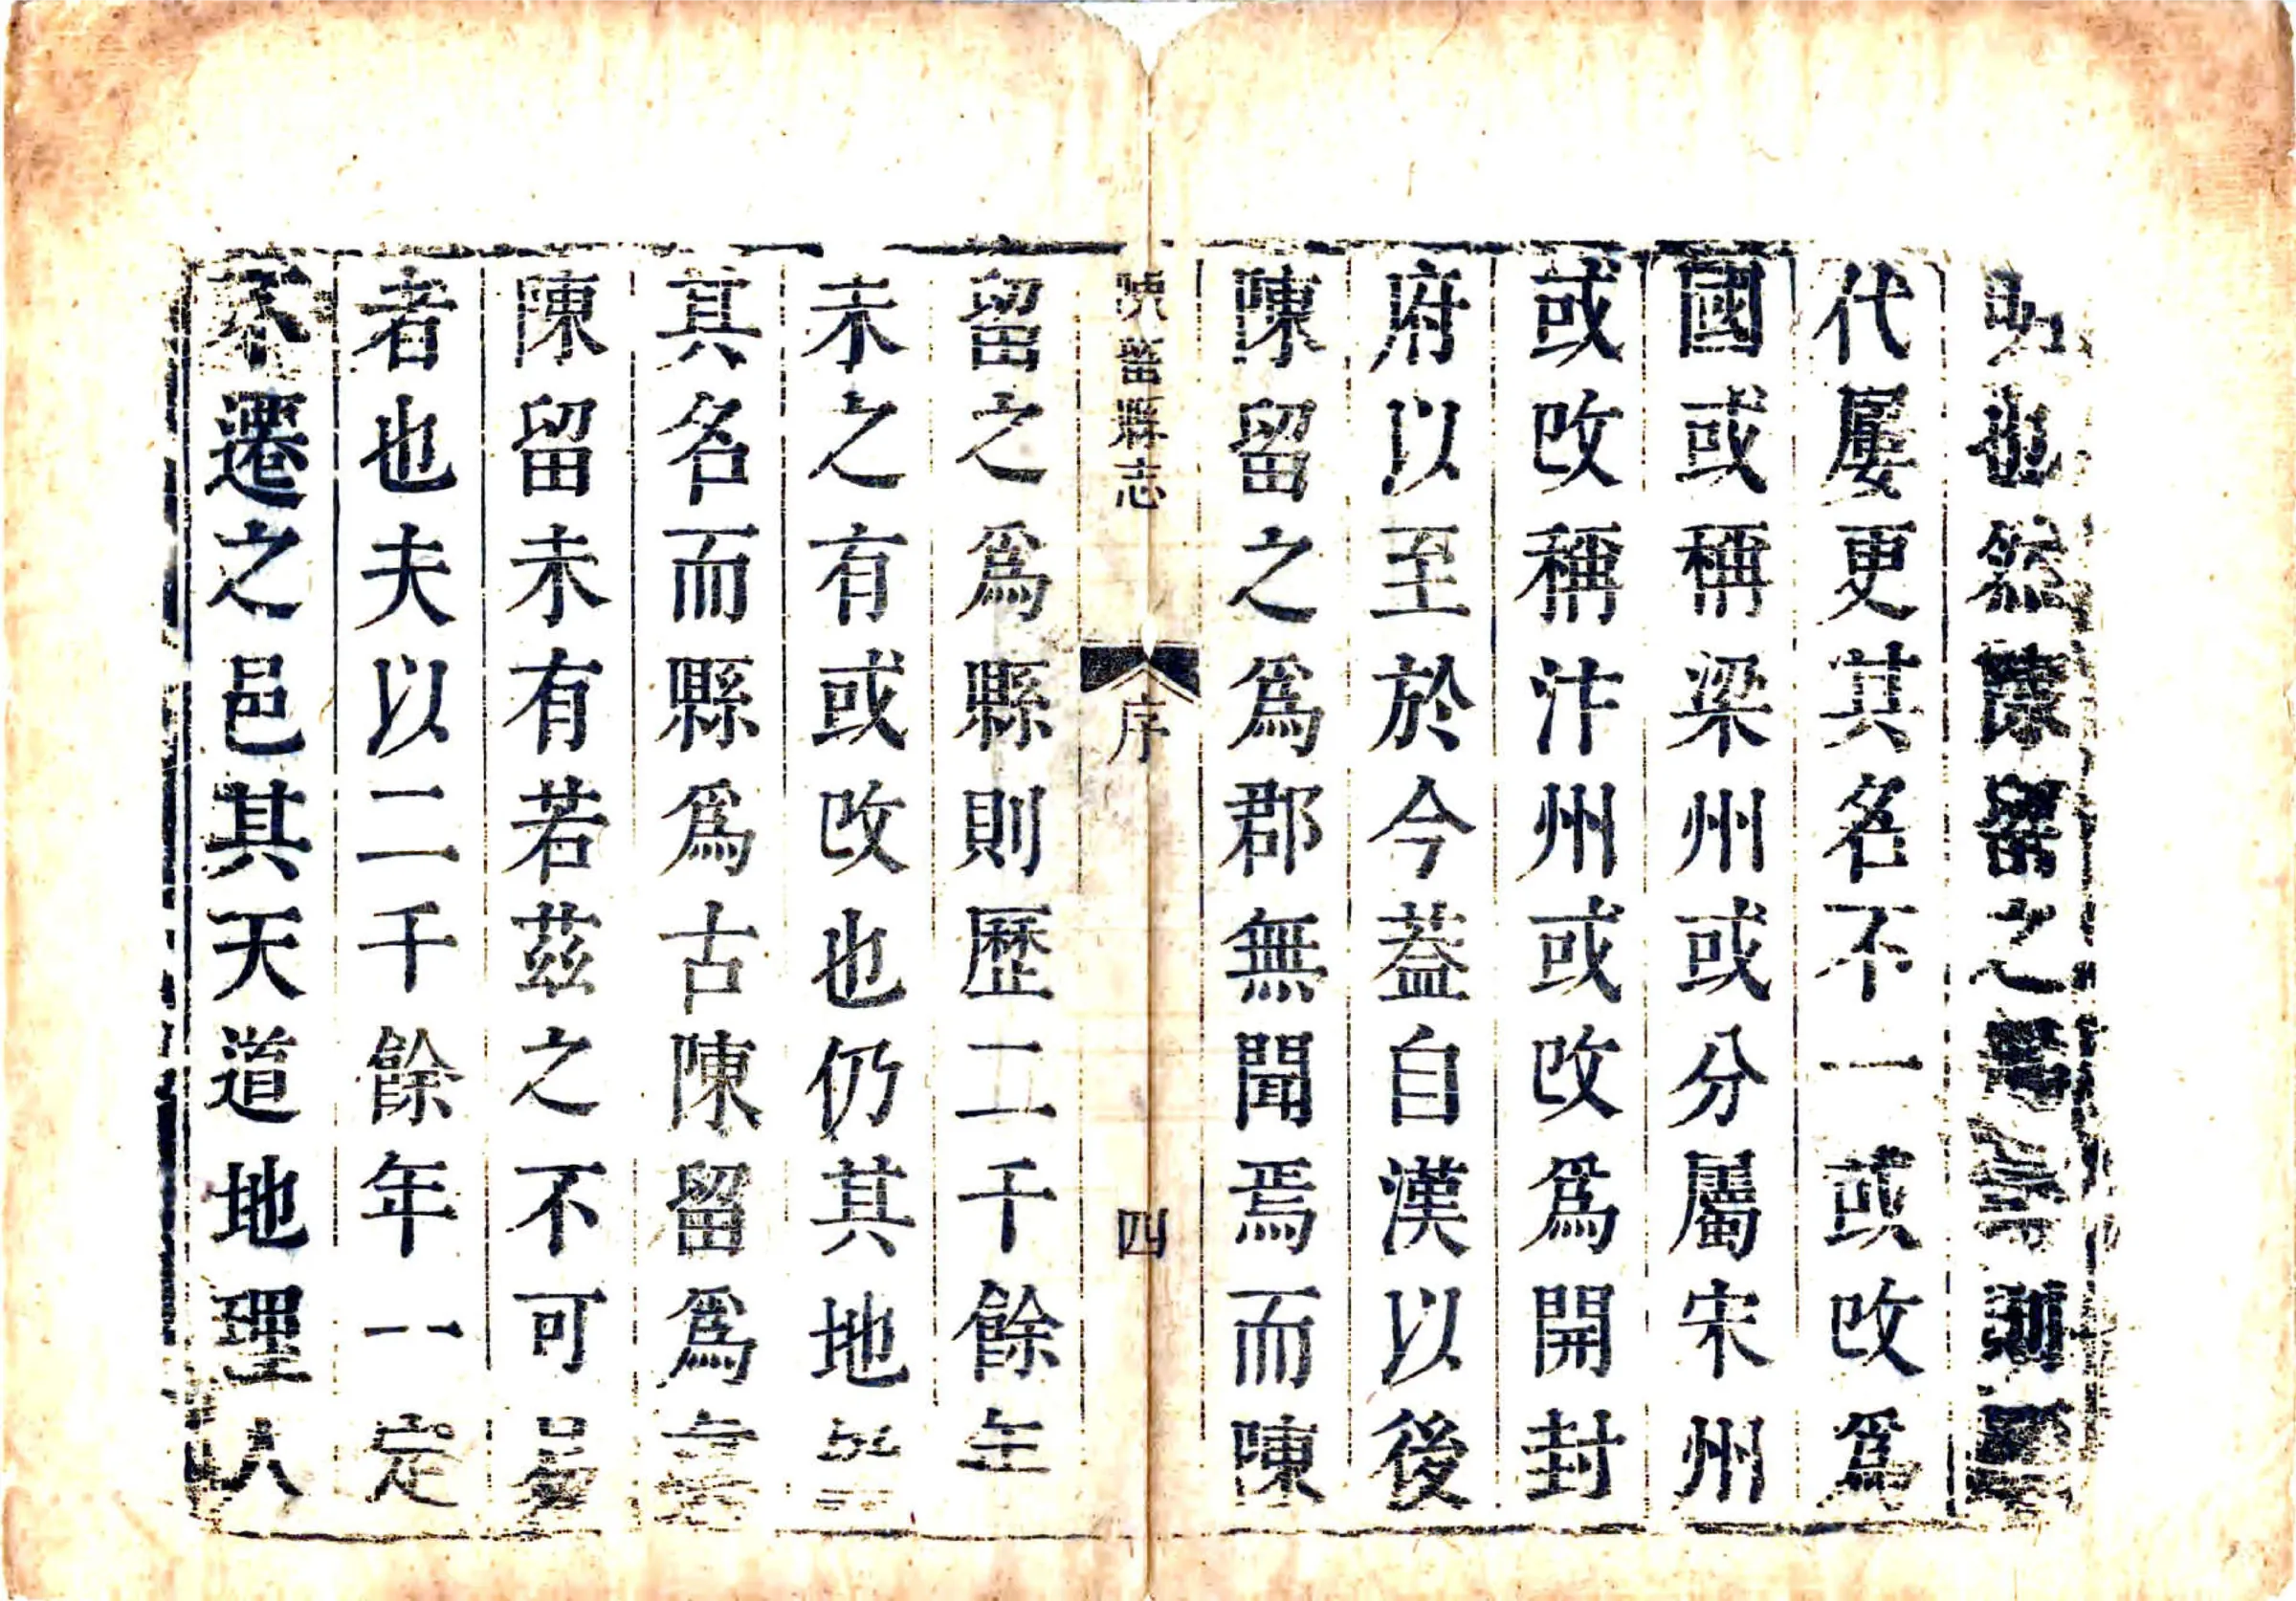 明也然陳留之爲郡則
代屢更其名不一或改爲
國或稱梁州或分屬宋州
或改稱汴州或改爲開封
府以至於今葢自漢以後
陳留之爲郡無聞焉而陳
陳留縣志
序
四
留之爲縣則歷二千餘年
未之有或改也仍其地
其名而縣爲古陳留爲
陳留未有若茲之不可易
者也夫以二千餘年一定
不遷之邑其天道地理人